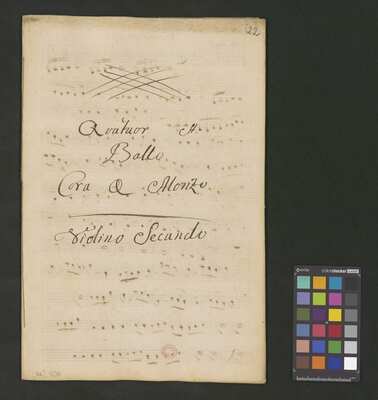 22
Quatuor
Ballo
Cora & Alonzo
Violino Secundo